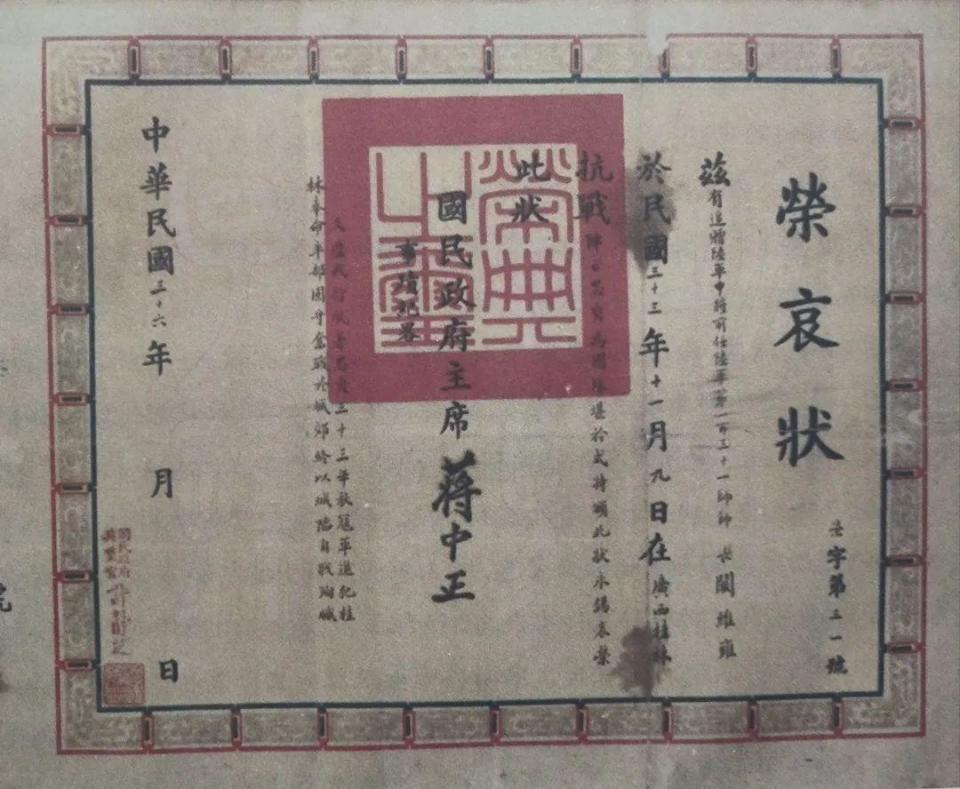 榮哀狀
榮字第三一號
茲有追贈陸軍中將前任陸軍第一百三十一師師長闞維雍
於民國三十三年十一月九日在廣西桂林
抗戰陣亡忠貞為國殊堪矜式特頒此狀永錫哀榮
此狀
榮典之璽
國民政府主席蔣中正
事蹟紀略
三十三年秋寇軍進犯桂
林奉命率部固守奮戰於城郊終以城陷自戕殉職
中華民國三十六年 月 日
國民政府